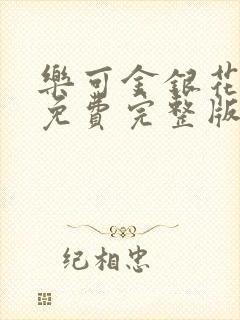 樂可金銀花
免費完整版
纪相忠